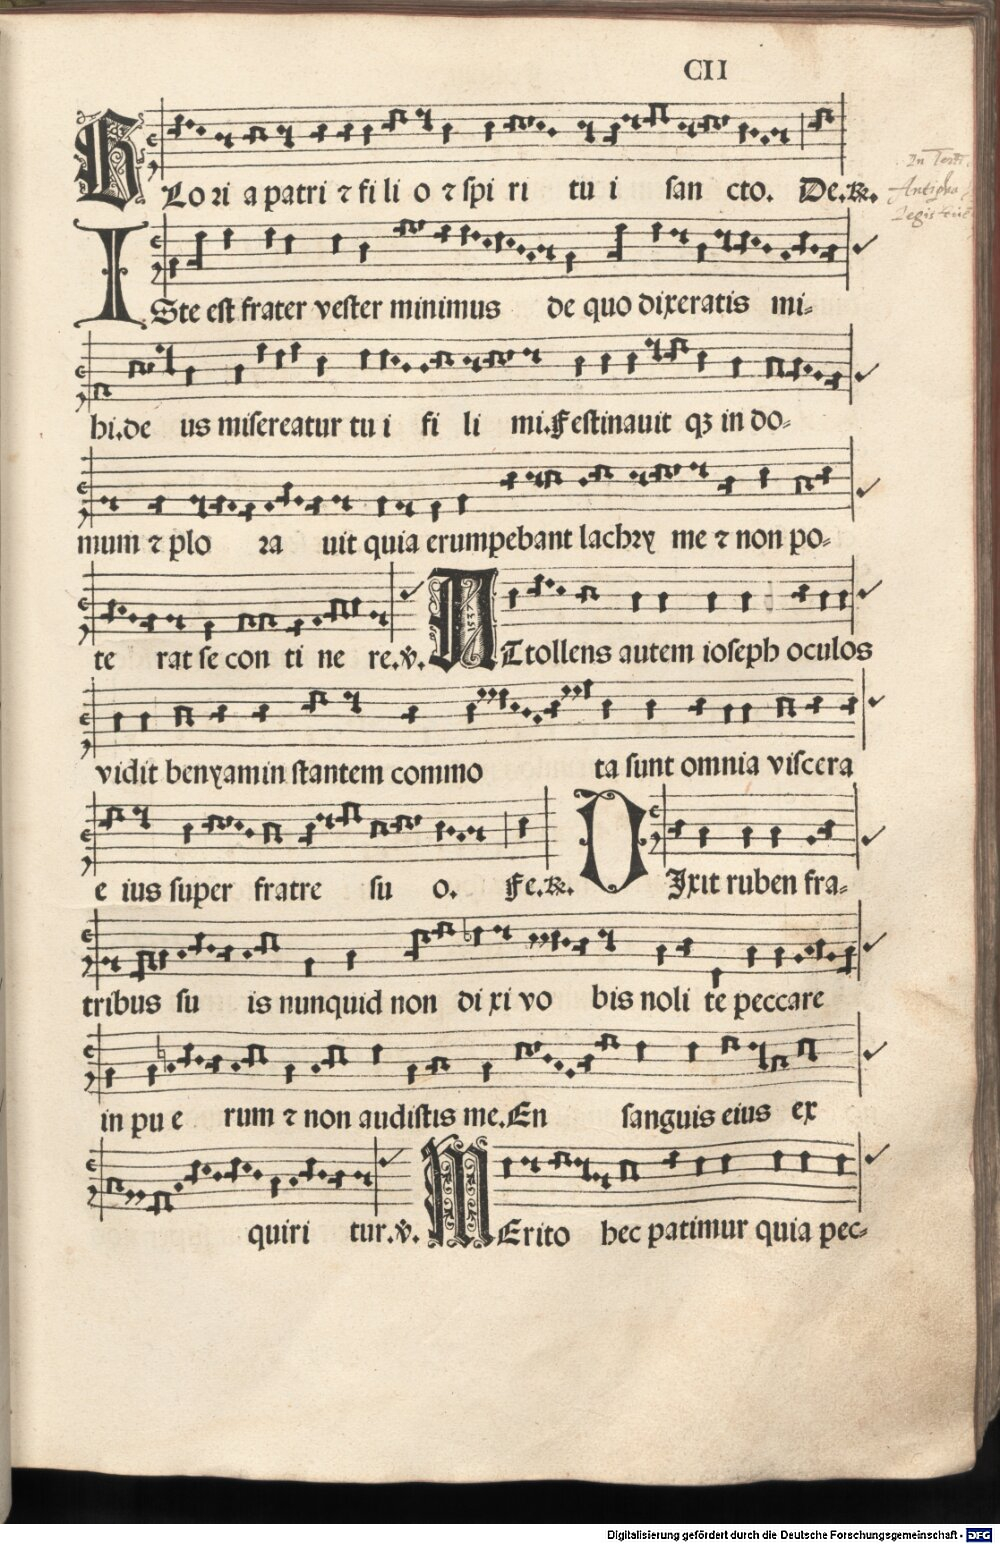 CII
GLo ri a patri ⁊ fi li o ⁊ spi ri tu i san cto. De.℞.
In
Antipha
ISte est frater vester minimus de quo dixeratis mi-
hi. de us misereatur tu i fi li mi. Festinauit qꝫ in do-
mum ⁊ plo ra uit quia erumpebant lachry me ⁊ non po-
te rat se con ti ne re. ℣. ATtollens autem ioseph oculos
vidit benyamin stantem commo ta sunt omnia viscera
e ius super fratre su o. Fe.℞. DIxit ruben fra-
tribus su is nunquid non di xi vo bis noli te peccare
in pu e rum ⁊ non audistis me. En sanguis eius ex
quiri tur. ℣. MErito hec patimur quia pec-
Digitalisierung gefördert durch die Deutsche Forschungsgemeinschaft - DFG